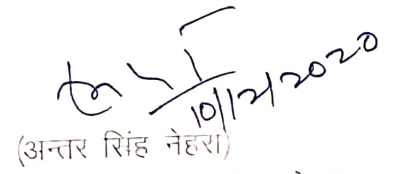 10/12/2020
(अन्तर सिंह नेहरा)